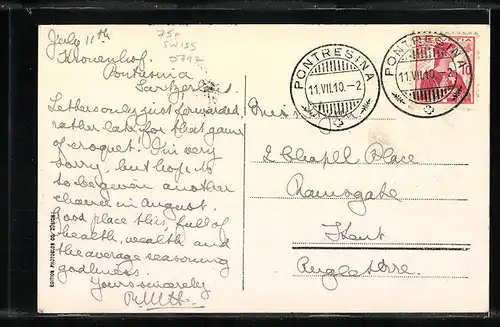 July 11th
75r
SWISS
Kronenhof.
Pontresina
Switzerland.
Letter only just forwarded,
rather late for that game
of croquet! I'm very
sorry, but hope to
to be given another
chance in August.
Good place this, full of
health, wealth and
the average seasoning
godliness.
Yours sincerely
EDITION PHOTOGLOB CO. ZÜRICH
PONTRESINA
11.VII.10.-2
PONTRESINA
11.VII.10.-2
10
2 Chapel Place
Ramsgate
Kent
Angleterre.